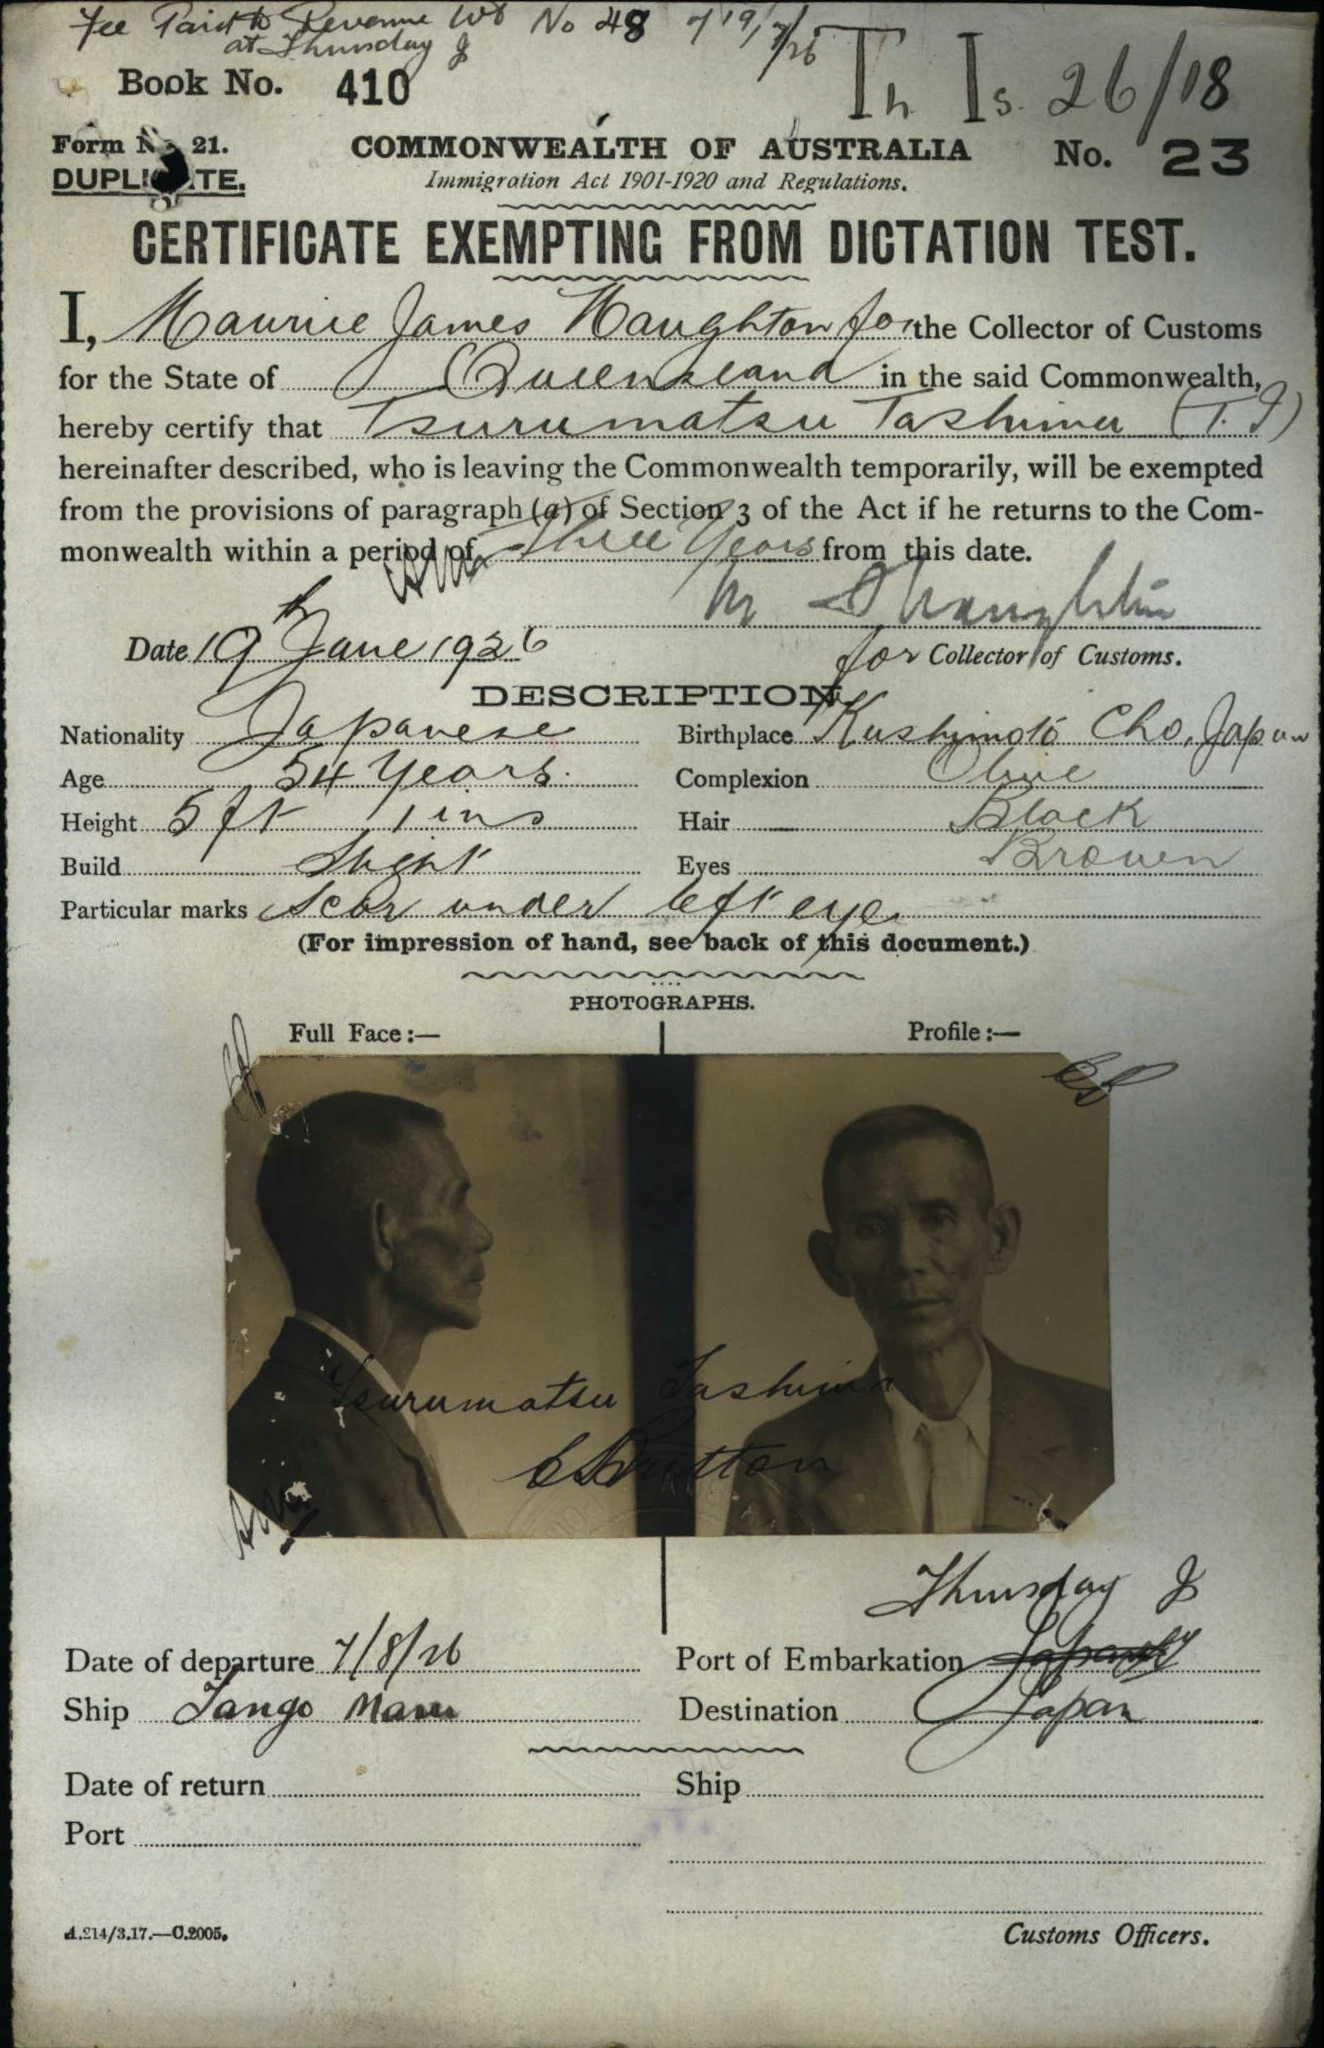 Fee Paid to Revenue No 48 719/7/26
at Thursday I
Book No. 410
Th Is. 26/18
Form No 21.
DUPLICATE.
COMMONWEALTH OF AUSTRALIA
No. 23
Immigration Act 1901-1920 and Regulations.
CERTIFICATE EXEMPTING FROM DICTATION TEST.
I, Maurice James Naughton for the Collector of Customs
for the State of Queensland in the said Commonwealth,
hereby certify that Tsurumatsu Tashima (T.I)
hereinafter described, who is leaving the Commonwealth temporarily, will be exempted
from the provisions of paragraph (a) of Section 3 of the Act if he returns to the Com-
monwealth within a period of Three Years from this date.
M J Naughton
Date 19th June 1926
for Collector of Customs.
DESCRIPTION
Nationality Japanese Birthplace Kushimoto Cho, Japan
Age 54 Years. Complexion Olive
Height 5 ft 1 ins Hair Black
Build Slight Eyes Brown
Particular marks Scar under left eye.
(For impression of hand, see back of this document.)
PHOTOGRAPHS.
Full Face:— Profile:—
Tsurumatsu Tashima
Thursday I
Date of departure 7/8/26 Port of Embarkation Japan
Ship Tango Maru Destination Japan
Date of return Ship
Port
A.214/3.17.—C.2005. Customs Officers.